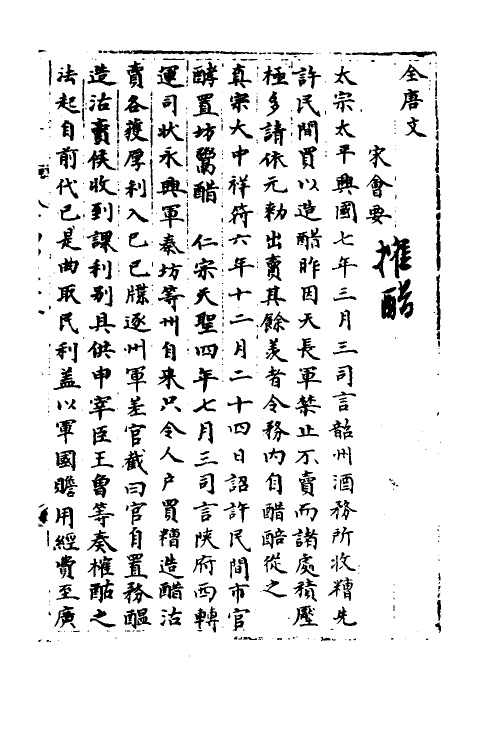 全唐文
宋會要
榷醋
太宗太平興國七年三月三司言韶州酒務所收糟先
許民間買以造醋昨因天長軍禁止不賣而諸處積壓
極多請依元勑出賣其餘羡者令務內自醋醅從之
真宗大中祥符六年十二月二十四日詔許民間市官
酵置坊鬻醋　仁宗天聖四年七月三司言陝府西轉
運司狀永興軍秦坊等州自来只令人户買糟造醋沽
賣各獲厚利入已已牒逐州軍差官截曰官自置務醖
造沽賣侯收到課利别具供申宰臣王魯等奏榷酤之
法起自前代已是曲取民利盖以軍國贍用經費至廣